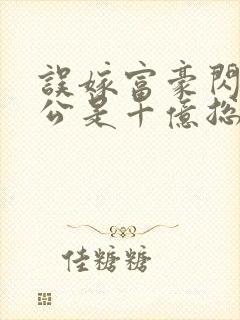 誤嫁富豪閃
公是十億總
佳糖糖